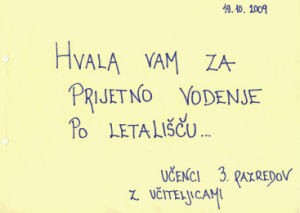 19.10.2009
HVALA VAM ZA
PRIJETNO VODENJE
PO LETALIŠČU...
UČENCI 3. RAZREDOV
Z UČITELJICAMI